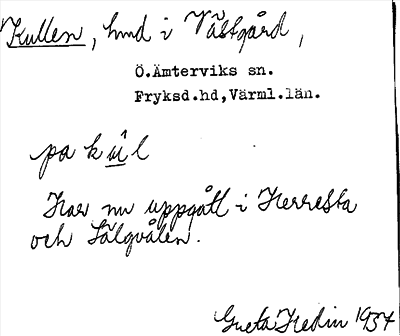 Kullen, hmd i Västgård,
Ö.Ämterviks sn.
Fryksd.hd,Värml.län.
pa ku̇l
Har nu uppgått i Herresta
och Sälgvålen.
Greta Hedin 1934